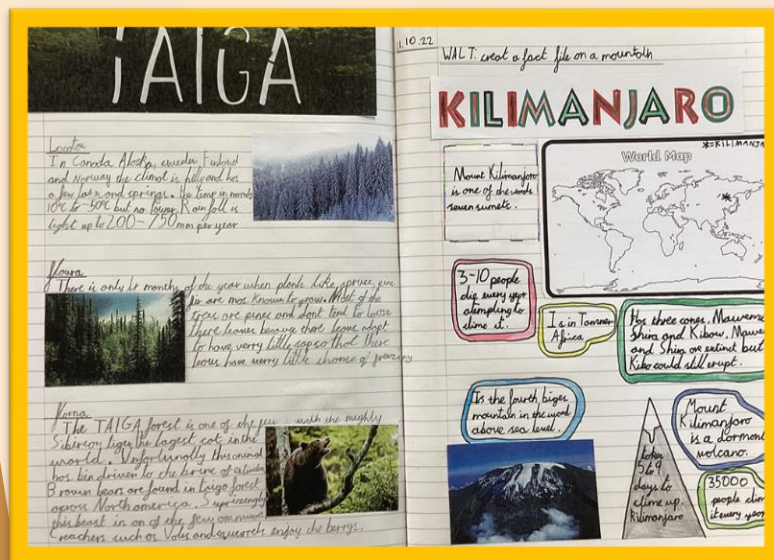 TAIGA
Location
In Canada Alaska, sweden, Finland
and Norway the climat is hilly and has
a few lakes and springs. the temp in
10°C to -50°C but no lower. Rainfall is
light up to 200-750mm per year
Floura
There is only 4 months of the year when plants like, spruce, pine
fir are mos known to grow. Most of the
trees are pines and dont tend to loose
there leaves because there leave adapt
to have verry little sap so that there
leaves have verry little chanse of freezing
The TAIGA forest is one of the few with the mighty
Sibirion tiger the lagest cat in the
world. Unfortunatly this animal
has bin driven to the brinc of extinction
Brown bears are found in taiga forest
across North america. Suprisingly
this beast is on of the few omnivores
Creachers such as Voles and squirrels enjoy the berrys.
.10.22
WALT: creat a fact file on a mountain
KILIMANJARO
Mount Kilimanjaro
is one of the worlds
seven sumets.
World Map
*=KILIMANJA
3-10 people
die every year
atempting to
clime it.
Is in
Africa
Has three cones, Mawenzi
Shira and Kibow, Mawe
and Shira are extinct but
Kibo could still erupt.
Is the fourth biges
mountain in the word
above sea level.
takes
5 to 9
days to
clime up.
Kilimanjaro
Mount
Kilimanjaro
is a dorment
volcano.
35000
people clim
it every year